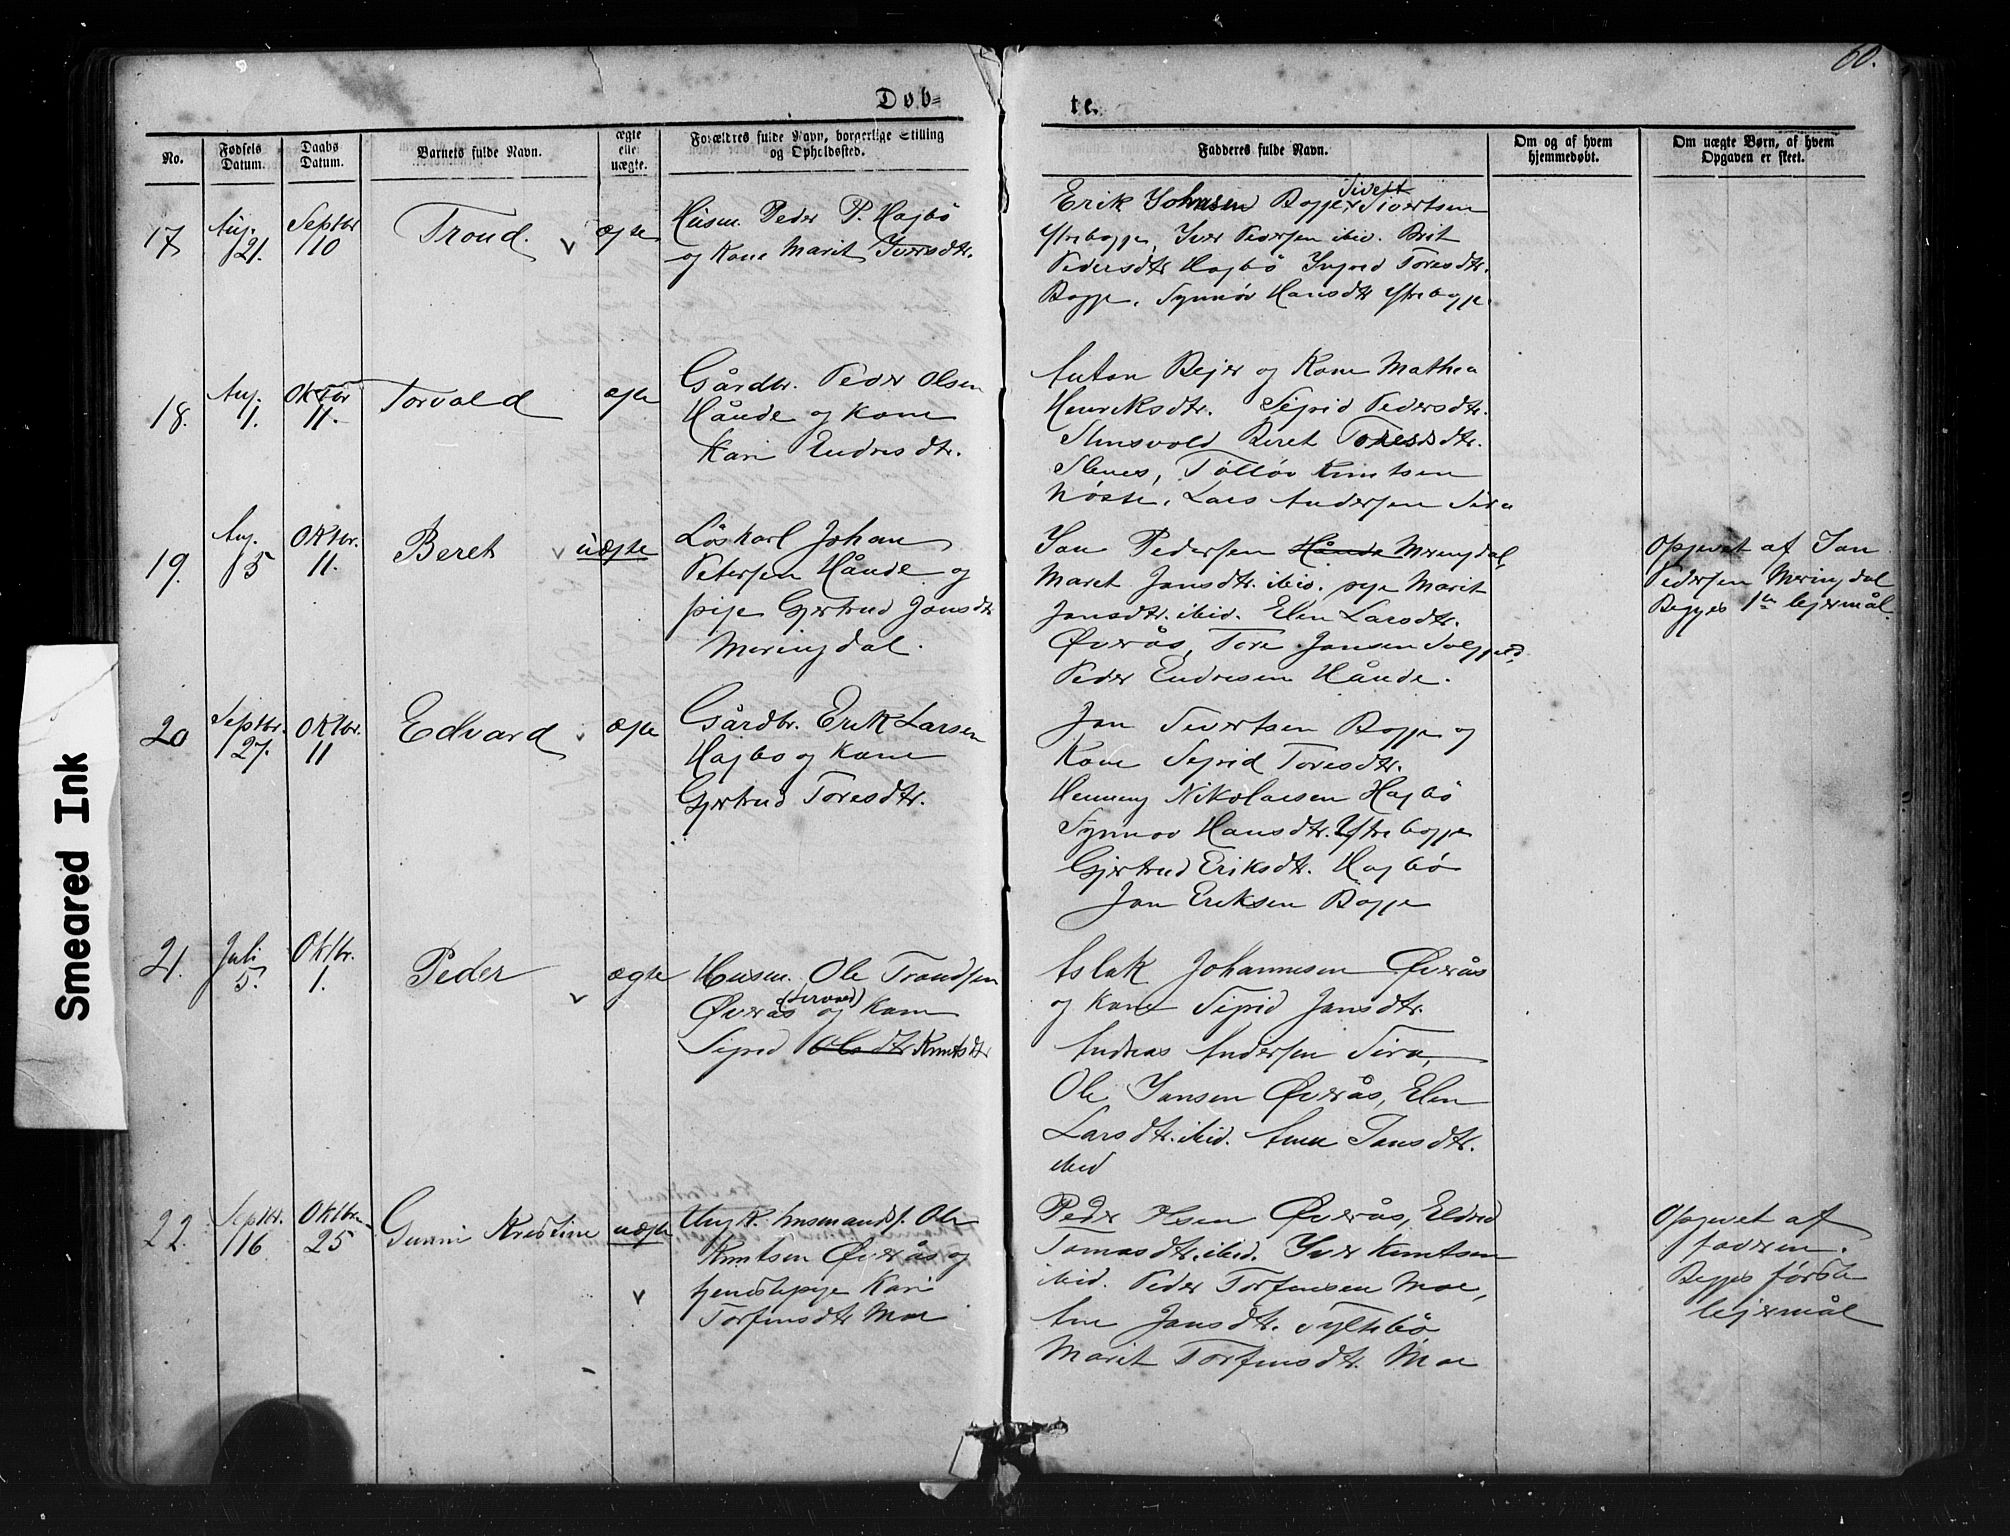 60.
Døb=
te.
No.
Fødsels Datum.
Daabs Datum.
Barnets fulde Navn.
ægte eller uægte.
Forældres fulde Navn, borgerlige Stilling og Opholdssted.
Fadderes fulde Navn.
Om og af hvem hjemmedøbt.
Om uægte Børn, af hvem Opgaven er skeet.
17
Aug. 21.
Septbr 10
Trond.
ægte
Husm. Peder P. Hagbø
og Kone Marit Iversdtr.
Sivert
Erik Johnsen Bogge Sivertsen
Ytrebogge, Iver Pedersen ibid. Brit
Pedersdtr Hagbø Ingrid Toresdtr.
Bogge. Synnøv Hansdtr Ytrebogge.
18.
Aug. 1.
Oktbr 11.
Torvald
ægte
Gårdbr. Peder Olsen
Hånde og Kone
Kari Endresdtr.
Anton Bejer og Kone Mathea
Henriksdtr. Sigrid Pedersdtr.
Beret Toresdtr.
Slenes, Knutsen
Nøste, Lars Andersen Sira
19.
Aug. 5
Oktbr. 11.
Beret
uægte
Løskarl Johan
Petersen Hånde og
pige Gjertrud Jonsdtr
Meringdal.
Jon Pedersen Hånde Meringdal,
Maret Jonsdtr. ibid. pige Marit
Jonsdtr. ibid. Elen Larsdtr.
Øverås, Tore Jonsen
Peder Endresen Hånde.
Opgivet af Jon
Pedersen Meringdal
Begges 1ste lejermål.
20
Septbr. 27.
Oktbr. 11
Edvard
ægte
Gårdbr. Erik Larsen
Hagbø og Kone
Gjertrud Toresdtr.
Jon Sivertsen Bogge og
Kone Sigrid Toresdtr.
Henning Nikolaesen Hagbø
Synnøv Hansdtr. Ytrebogge
Gjertrud Eriksdtr. Hagbø
Jon Eriksen Bogge
21.
Juli 5.
Oktbr. 1.
Peder
ægte
Husm. Ole Trondsen
Øverås og Kone
Sigrid Olsdtr Knutsdtr
Aslak Johannesen Øverås
og Kone Sigrid Jonsdtr.
Andreas Andersen Sira,
Ole Jonsen Øverås, Elen
Larsdtr. ibid. Ane Jonsdtr.
ibid
22.
Septbr. 16
Oktbr. 25
Gunni Kristine
uægte
Ungk. husmands. Ole
Knutsen Øverås og
tjenestepige Kari
Torfinsdtr Moe
Peder Olsen Øverås, Eldrid
Tomasdtr. ibid. Iver Knutsen
ibid. Peder Torfinsen Moe,
Ane Jonsdtr. Syltebø
Marit Torfinsdtr. Moe
Opgivet af
faderen.
Begges første
lejermål
Smeared Ink